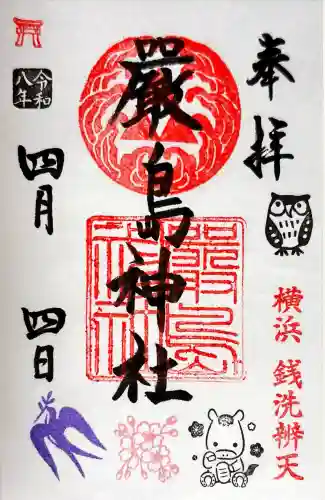 奉拝
横浜 銭洗辨天
嚴島神社
嚴島神社
令和八年
四月 四日